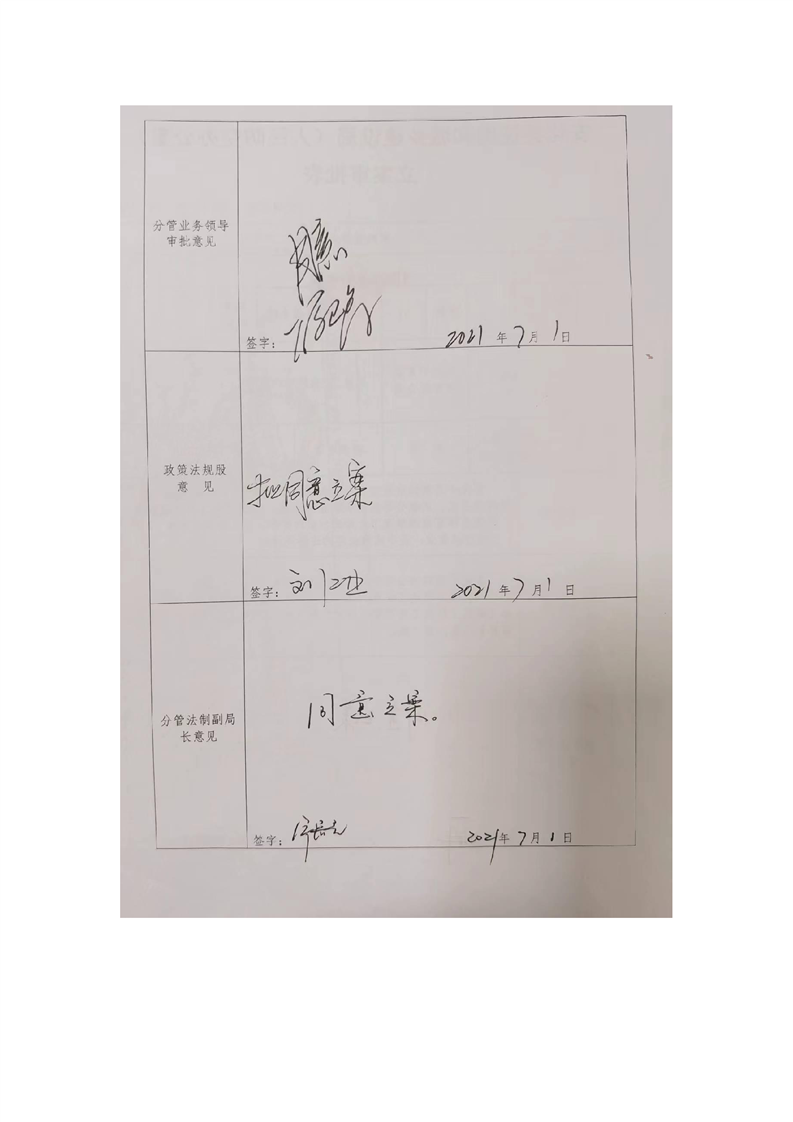 分管业务领导
审批意见
同意
签字：
2021年7月1日
政策法规股
意 见
拟同意立案
签字：刘
2021年7月1日
分管法制副局
长意见
同意立案。
签字：
2021年7月1日